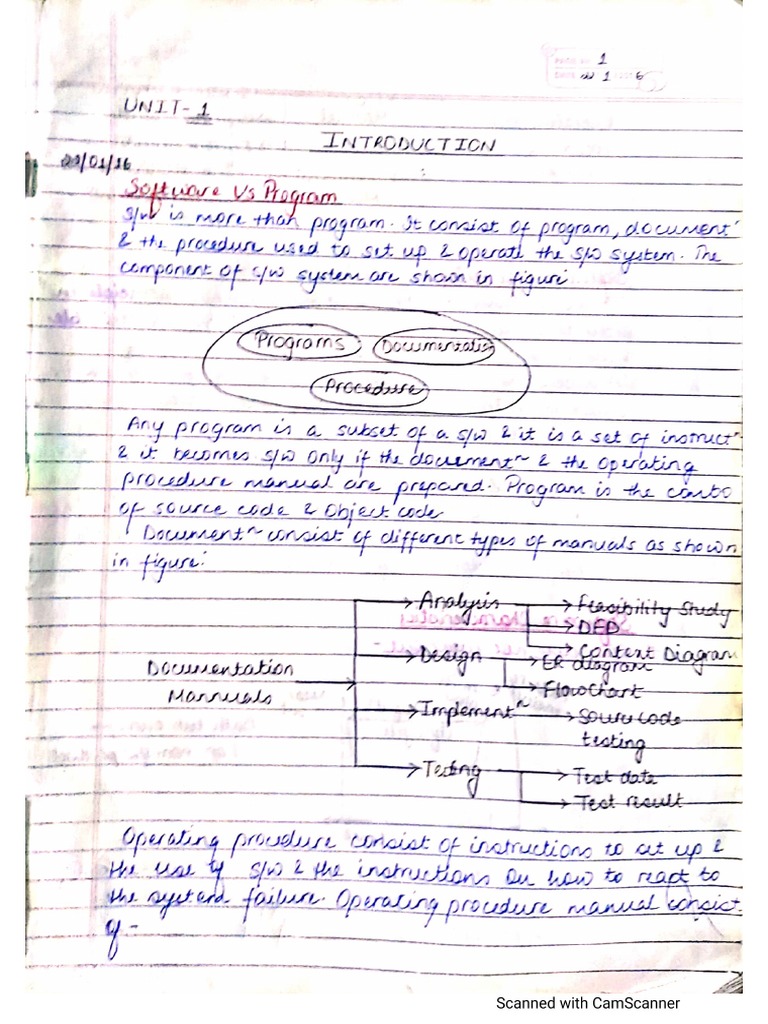 1
UNIT-1
INTRODUCTION
Software Vs Program
S/W is more than program. It consist of program, document~
& the procedure used to set up & operate the S/W system. The
component of S/W system are shown in figure
Programs Documentation
Procedure
Any program is a subset of a S/W & it is a set of instruct~
& it becomes S/W only if the document~ & the operating
procedure manual are prepared. Program is the combo
of source code & Object code
Document~ consist of different types of manuals as shown
in figure:
Analysis Feasibility Study
DFD
Context Diagram
Design ER diagram
Documentation
Mannuals
FlowChart
Implement~ Source code
testing
Testing Test date
Test result
Operating procedure consist of instructions to set up &
the use of S/W & the instructions on how to react to
the system failure. Operating procedure manual consist
of -
Scanned with CamScanner